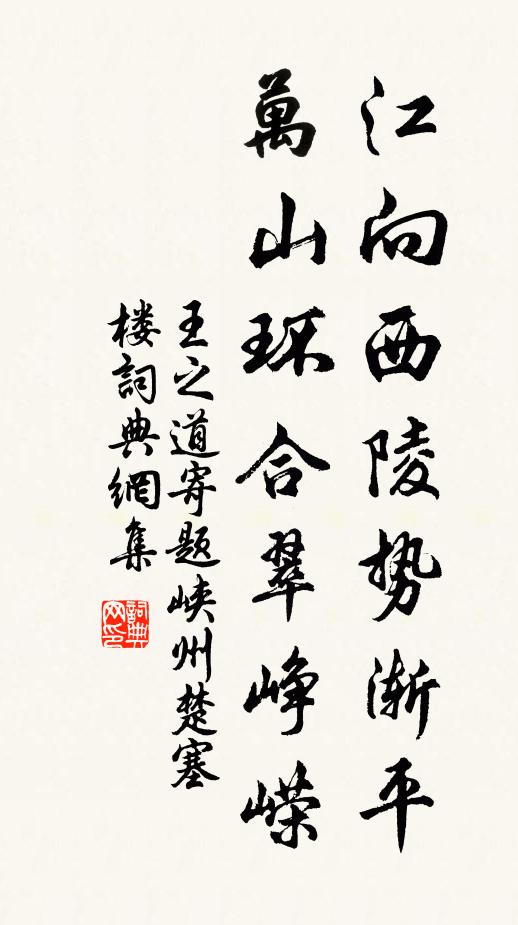 江向西陵势渐平
萬山环合翠峥嵘
王之道寄题峡州楚塞
楼詞典網集
詞典网印